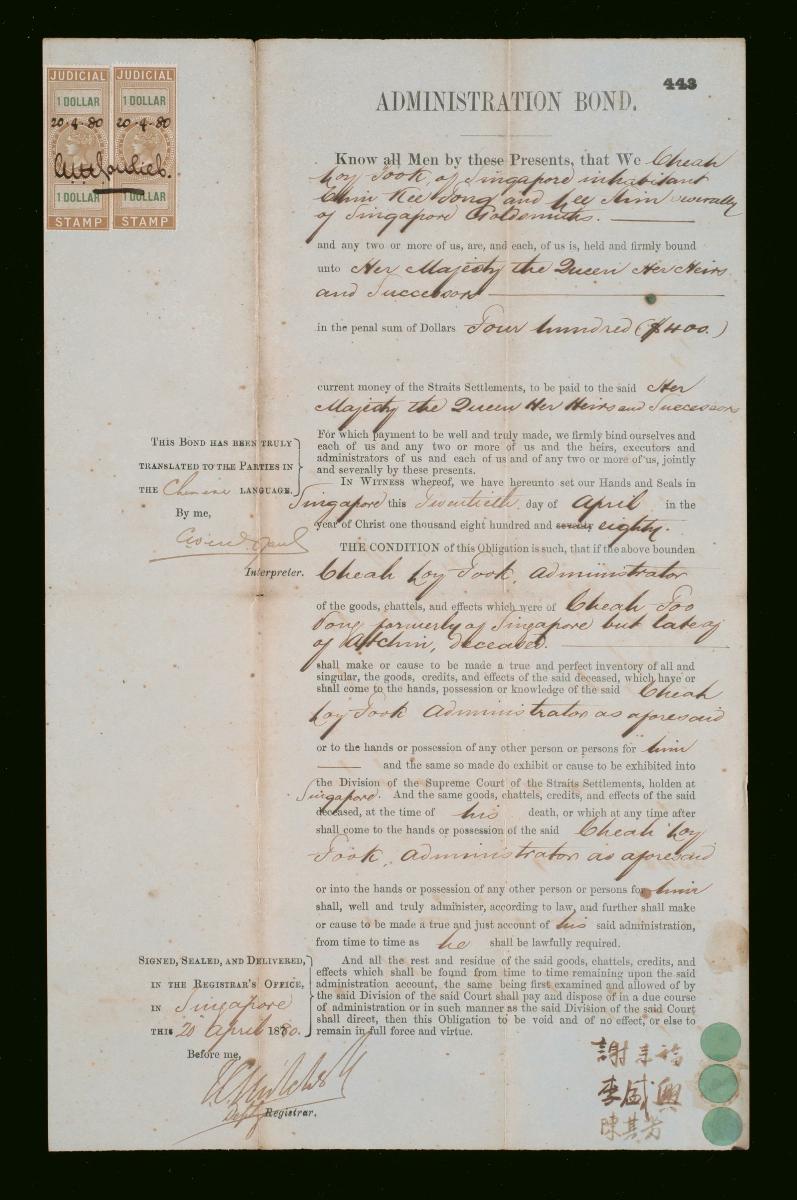 JUDICIAL JUDICIAL
1 DOLLAR 1 DOLLAR
20-4-80 20-4-80
1 DOLLAR 1 DOLLAR
STAMP STAMP
443
ADMINISTRATION BOND.
Know all Men by these Presents, that We Cheah
hoy Took, of Singapore inhabitant
Kee and severally
of Singapore Goldsmiths.
and any two or more of us, are, and each, of us is, held and firmly bound
unto Her Majesty the Queen Her Heirs
and Successors
in the penal sum of Dollars Four hundred ($400.)
current money of the Straits Settlements, to be paid to the said Her
Majesty the Queen Her Heirs and Successors
For which payment to be well and truly made, we firmly bind ourselves and
each of us and any two or more of us and the heirs, executors and
administrators of us and each of us and of any two or more of us, jointly
and severally by these presents.
In Witness whereof, we have hereunto set our Hands and Seals in
Singapore this Twentieth day of April in the
year of Christ one thousand eight hundred and seventy eighty.
This Bond has been truly
translated to the Parties in
the Chinese language.
By me,
Interpreter.
THE CONDITION of this Obligation is such, that if the above bounden
Cheah hoy Took, administrator
of the goods, chattels, and effects which were of Cheah Too
formerly of Singapore but late of
of Atchin, deceased.
shall make or cause to be made a true and perfect inventory of all and
singular, the goods, credits, and effects of the said deceased, which have or
shall come to the hands, possession or knowledge of the said Cheah
hoy Took administrator as aforesaid
or to the hands or possession of any other person or persons for him
and the same so made do exhibit or cause to be exhibited into
the Division of the Supreme Court of the Straits Settlements, holden at
Singapore. And the same goods, chattels, credits, and effects of the said
deceased, at the time of his death, or which at any time after
shall come to the hands or possession of the said Cheah hoy
Took, administrator as aforesaid
or into the hands or possession of any other person or persons for him
shall, well and truly administer, according to law, and further shall make
or cause to be made a true and just account of his said administration,
from time to time as he shall be lawfully required.
And all the rest and residue of the said goods, chattels, credits, and
effects which shall be found from time to time remaining upon the said
administration account, the same being first examined and allowed of by
the said Division of the said Court shall pay and dispose of in a due course
of administration or in such manner as the said Division of the said Court
shall direct, then this Obligation to be void and of no effect, or else to
remain in full force and virtue.
Signed, Sealed, and Delivered,
in the Registrar's Office,
in Singapore
this 20 April 1880.
Before me,
Registrar.
謝 福
李盛興
陳其芳